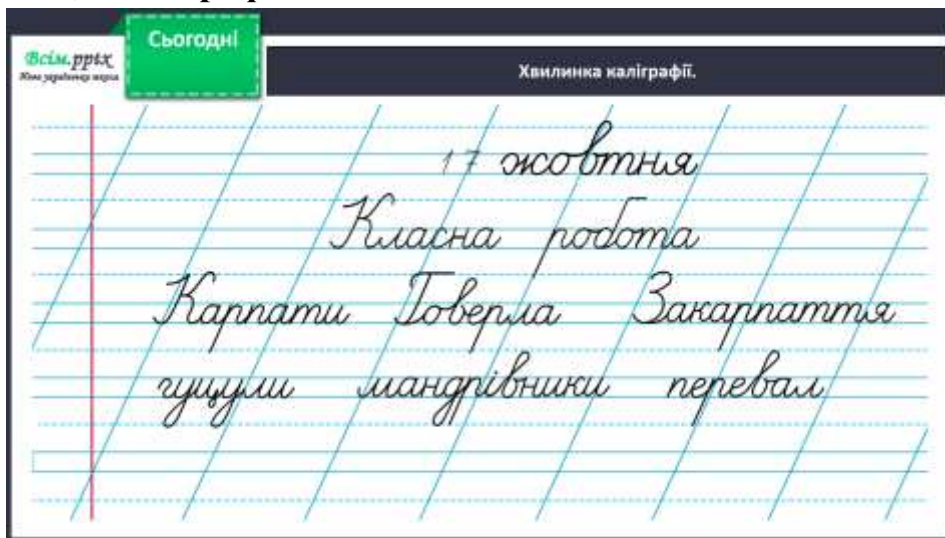 Сьогодні
Всім.pptx
Нова українська школа
Хвилинка каліграфії.
17 жовтня
Класна робота
Карпати Говерла Закарпаття
гуцули мандрівники перевал